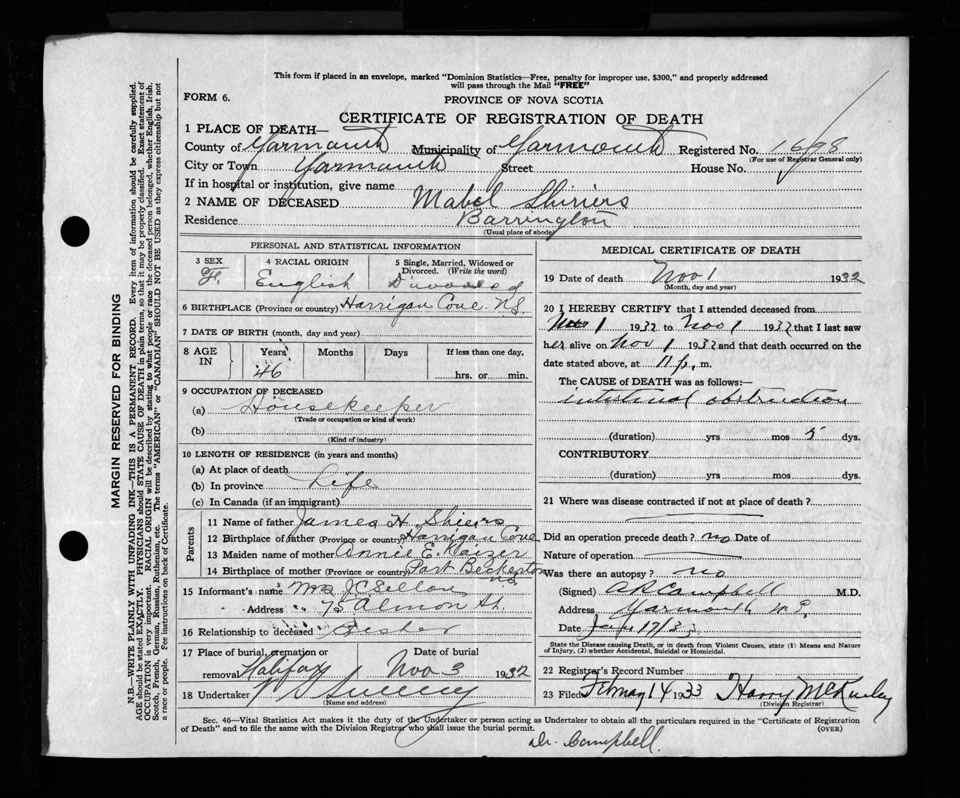 This form if placed in an envelope, marked "Dominion Statistics—Free, penalty for improper use, $300," and properly addressed
will pass through the Mail "FREE"
FORM 6.
PROVINCE OF NOVA SCOTIA
CERTIFICATE OF REGISTRATION OF DEATH
1 PLACE OF DEATH—
County of Yarmouth Municipality of Yarmouth Registered No. 1698
(For use of Registrar General only)
City or Town Yarmouth Street House No.
If in hospital or institution, give name
2 NAME OF DECEASED Mabel
Residence Barrington
(Usual place of abode)
PERSONAL AND STATISTICAL INFORMATION
3 SEX 4 RACIAL ORIGIN 5 Single, Married, Widowed or
Divorced. (Write the word)
F. English Divorced
6 BIRTHPLACE (Province or country) Harrigan Cove N.S.
7 DATE OF BIRTH (month, day and year)
8 AGE IN Years Months Days If less than one day,
46 hrs. or min.
9 OCCUPATION OF DECEASED
(a) Housekeeper
(Trade or occupation or kind of work)
(b)
(Kind of industry)
10 LENGTH OF RESIDENCE (in years and months)
(a) At place of death
(b) In province Life
(c) In Canada (if an immigrant)
Parents
11 Name of father James H. Shiers
12 Birthplace of father (Province or country) Harrigan Cove
13 Maiden name of mother Annie E. Kaizer
14 Birthplace of mother (Province or country) Port Beckerton
NS
15 Informant's name Mrs J.C.
" Address 75 Almon St.
16 Relationship to deceased Sister
17 Place of burial, cremation or Date of burial
removal Halifax Nov 3 1932
18 Undertaker Sweeny
(Name and address)
MEDICAL CERTIFICATE OF DEATH
19 Date of death Nov 1 1932
(Month, day and year)
20 I HEREBY CERTIFY that I attended deceased from
Nov 1 1932 to Nov 1 1932 that I last saw
her alive on Nov 1 1932 and that death occurred on the
date stated above, at 11 p. m.
The CAUSE OF DEATH was as follows:—
intestinal obstruction
(duration) yrs mos 5 dys.
CONTRIBUTORY
(duration) yrs. mos dys.
21 Where was disease contracted if not at place of death?
Did an operation precede death? no Date of
Nature of operation
Was there an autopsy? no
(Signed) Campbell M.D.
Address Yarmouth N.S.
Date Jan 17/3
State the Disease causing Death, or in death from Violent Causes, state (1) Means and Nature
of Injury, (2) whether Accidental, Suicidal or Homicidal.
22 Registrar's Record Number
23 Filed 14 1933 Harry
(Division Registrar)
Sec. 46—Vital Statistics Act makes it the duty of the Undertaker or person acting as Undertaker to obtain all the particulars required in the "Certificate of Registration
of Death" and to file the same with the Division Registrar who shall issue the burial permit. (OVER)
Dr. Campbell
MARGIN RESERVED FOR BINDING
N.B.—WRITE PLAINLY WITH UNFADING INK—THIS IS A PERMANENT RECORD. Every item of information should be carefully supplied.
AGE should be stated EXACTLY. PHYSICIANS should STATE CAUSE OF DEATH in plain terms, so that it may be properly classified. Exact statement of
OCCUPATION is very important. RACIAL ORIGIN will be described by stating to what people or race the deceased person belonged, whether English, Irish,
Scotch, French, German, Russian, Ruthenian, etc. The terms "AMERICAN" or "CANADIAN" SHOULD NOT BE USED as they express citizenship but not
a race or people. Fee instructions on back of Certificate.